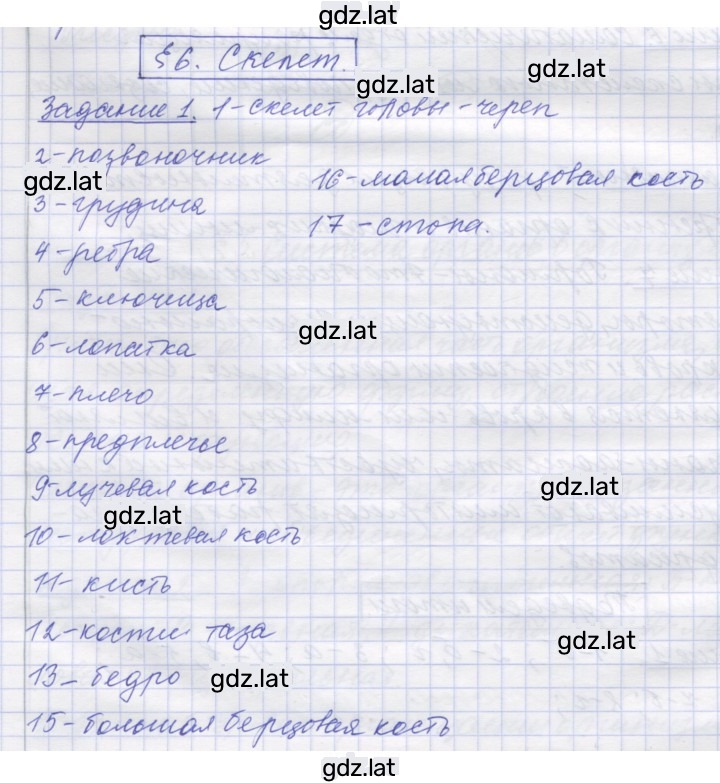 gdz.lat
§6. Скелет.
gdz.lat
gdz.lat
Задание 1. 1-скелет головы-череп
2-позвоночник
gdz.lat
16-малая берцовая кость
3-грудина
17-стопа.
4-ребра
5-ключица
gdz.lat
6-лопатка
7-плечо
8-предплечье
9-лучевая кость
gdz.lat
gdz.lat
10-локтевая кость
11-кисть
12-кости таза
gdz.lat
13-бедро
gdz.lat
15-большая берцовая кость
gdz.lat